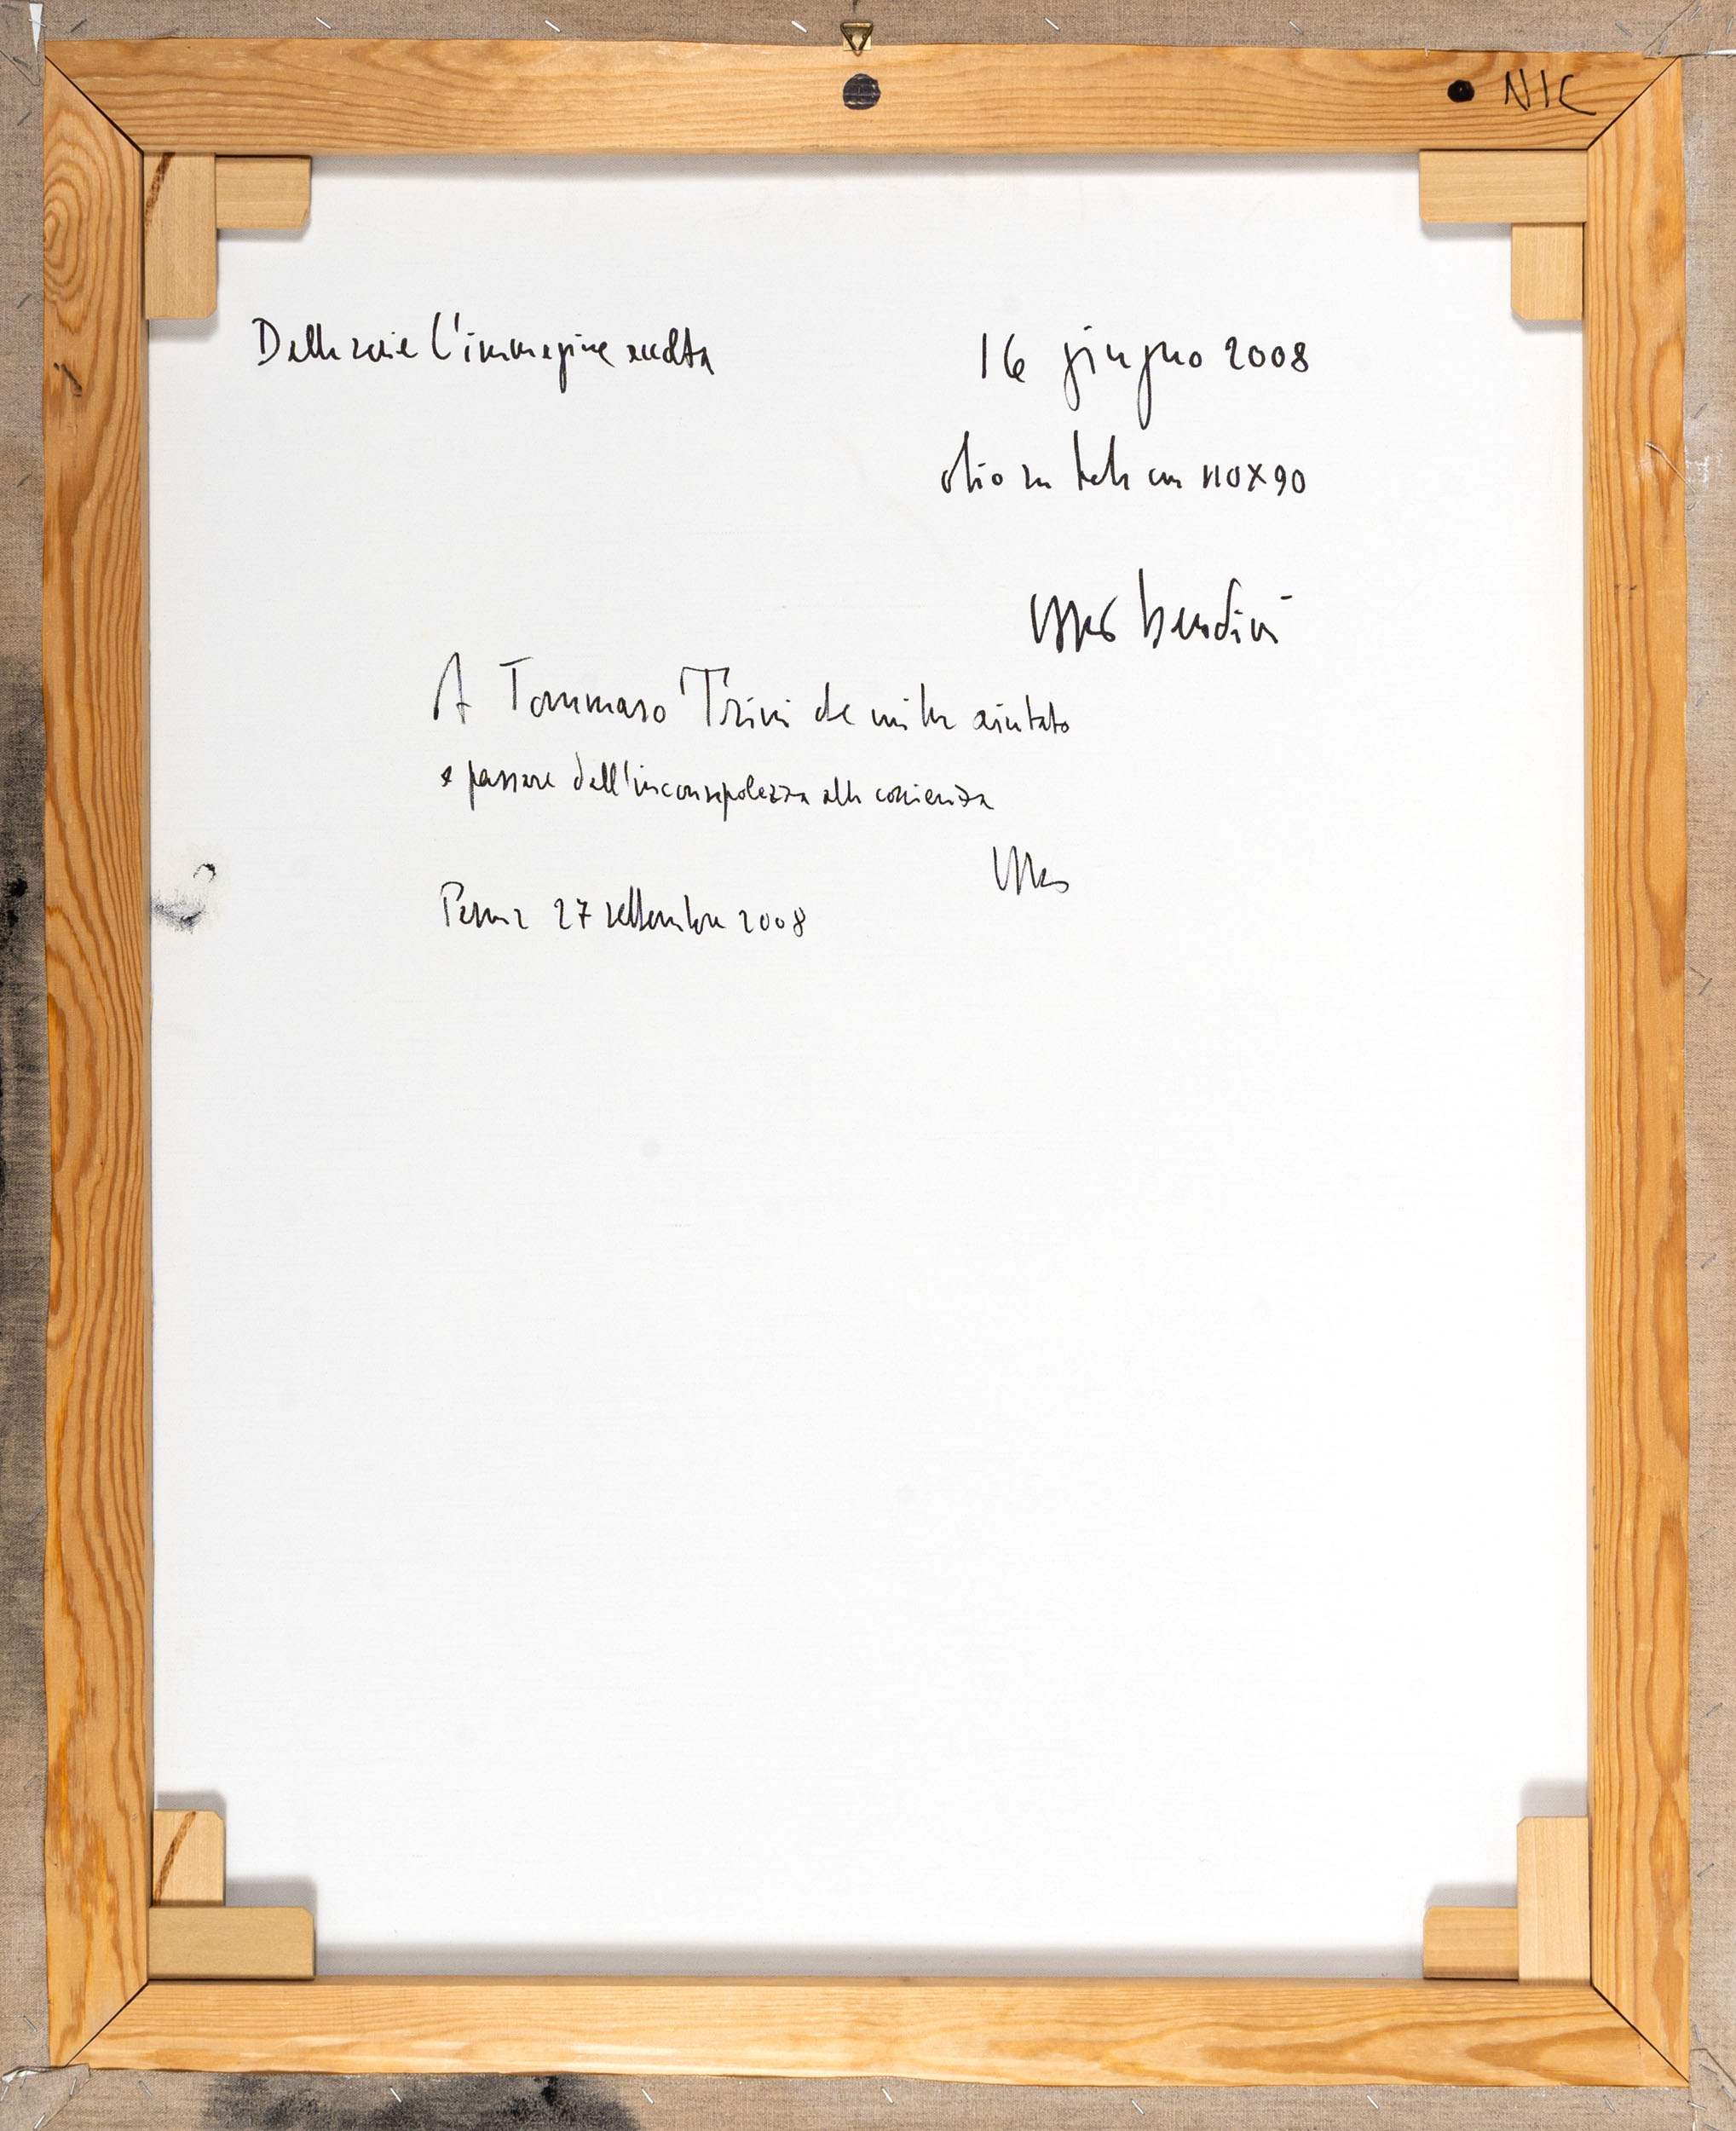 NIC
Dalla serie l'immagine accolta
16 giugno 2008
olio su tela cm 110x90
Vasco Bendini
A Tommaso Trini che mi ha aiutato
a passare dall'inconsapolezza alla coscienza
Vasco
Parma 27 settembre 2008